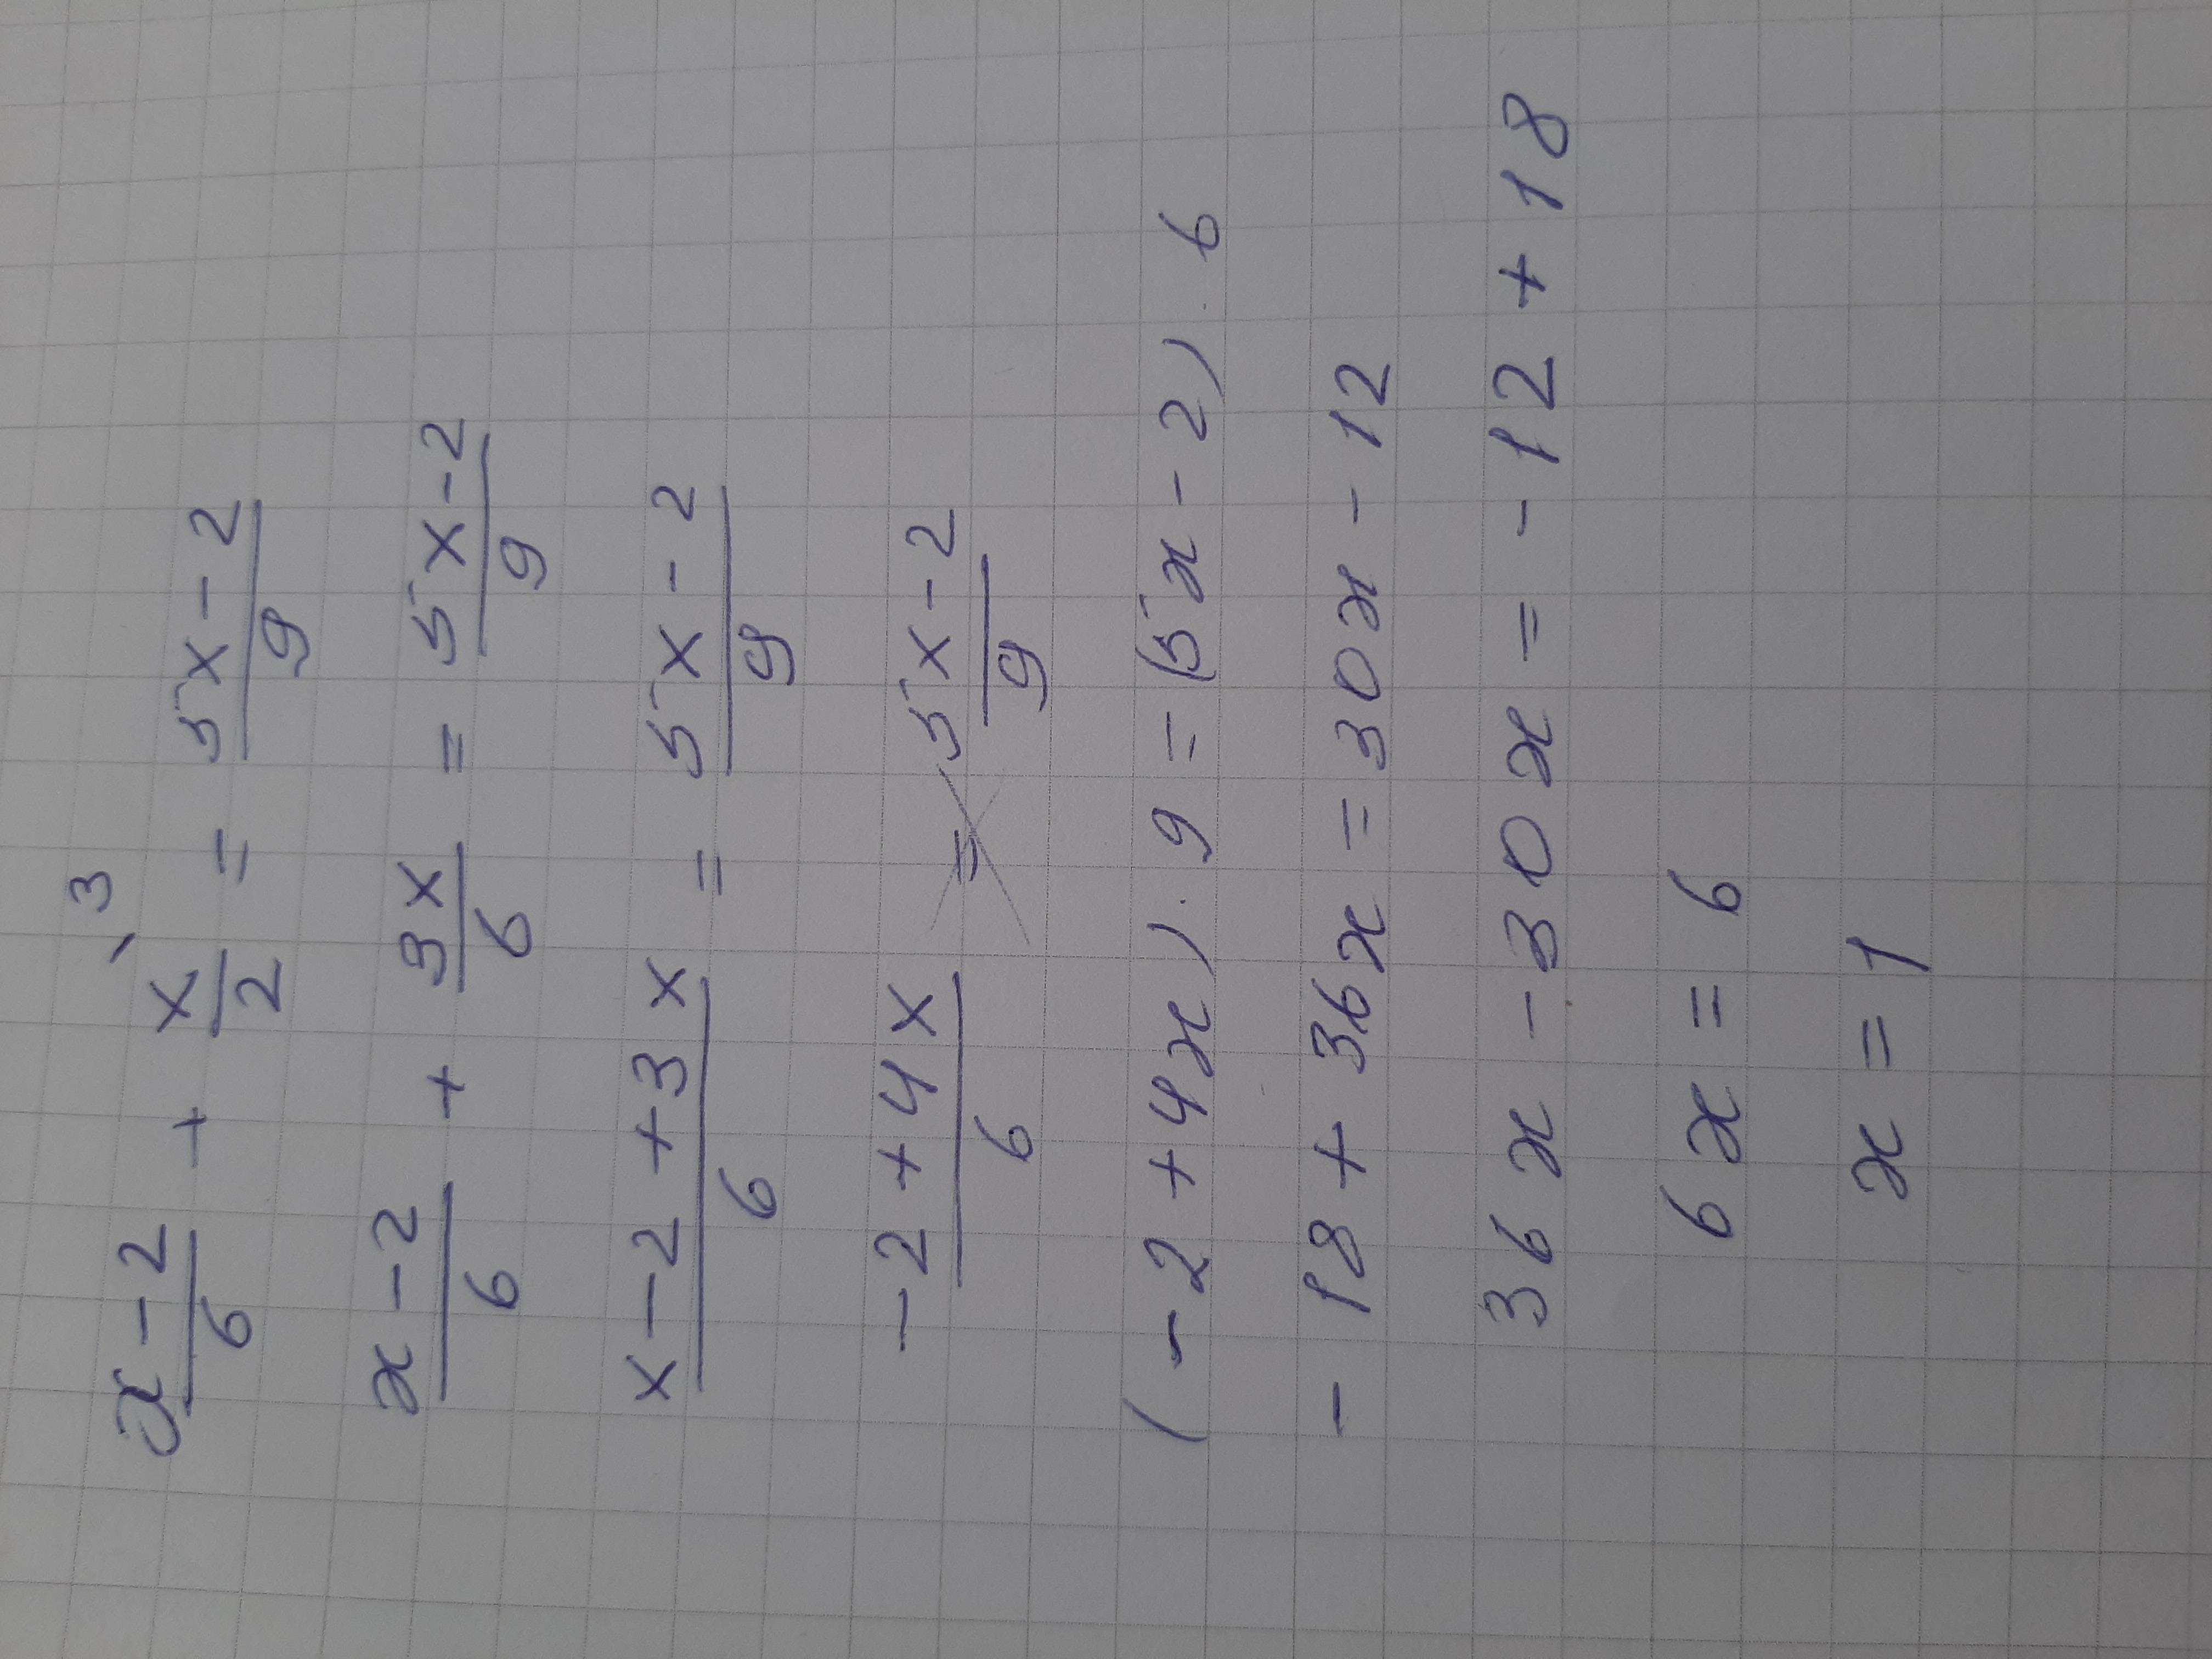 3
(x-2)/6 + x/2 = (5x-2)/9
(x-2)/6 + 3x/6 = (5x-2)/9
(x-2+3x)/6 = (5x-2)/9
(-2+4x)/6 = (5x-2)/9
(-2+4x)·9=(5x-2)·6
-18+36x=30x-12
36x-30x=-12+18
6x=6
x=1